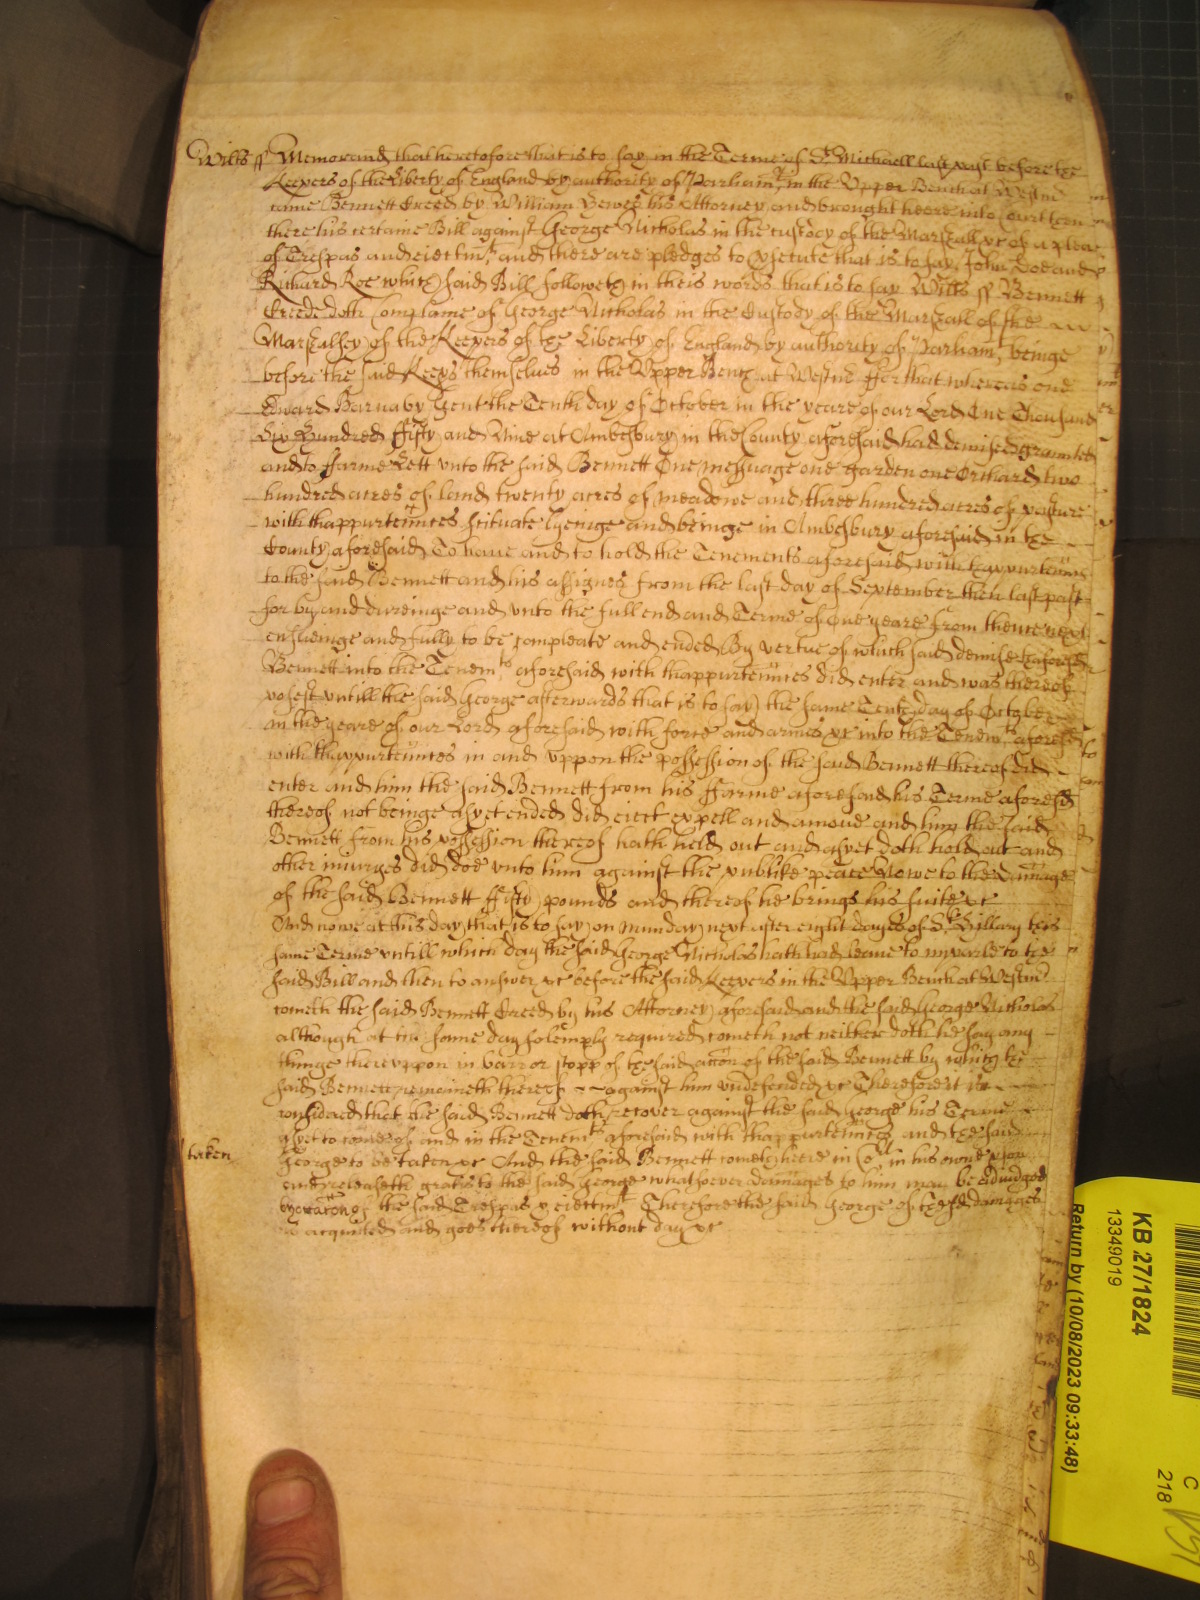 Wilts ss Memorand that heretofore that is to say in the Terme of St. Michaell last past before the
Keepers of the Liberty of England by authority of Parliamt. in the Upper Bench at Westm
came Bennett Creed by William Bewes his Attorney and brought heere into Court then
there his certaine Bill against George Nicholas in the custody of the Marshall &c of a plea
of Trespas and eiectmt. and there are pledges to prsecute that is to say John Doe and
Richard Roe which said Bill followeth in theis words that is to say Wilts ss Bennett
Creede doth Complaine of George Nicholas in the Custody of the Marshall of the
Marshalsey of the Keepers of the Liberty of England by authority of Parliamt. beinge
before the said Keeps themselves in the Upper Bench at Westm ffor that whereas one
Edward Barnaby Gent the Tenth day of October in the yeare of our Lord One Thousand
Six Hundred ffifty and Nine at Ambesbury in the County aforesaid had demised graunted
and to ffarme Lett unto the said Bennett One messuage one garden one Orchard two
hundred acres of land twenty acres of meadowe and three hundred acres of pasture
with thappurtennces scituate lyeinge and beinge in Ambesbury aforesaid in the
County aforesaid To have and to hold the Tenements aforesaid with thappurtennces
to the said Bennett and his assignes from the last day of September then last past
for by and dureinge and unto the full end and Terme of One yeare from thence next
ensueinge and fully to be compleate and ended By vertue of which said demise the aforesd
Bennett into the Tenemts aforesaid with thappurtennces did enter and was thereof
possest untill the said George afterwards that is to say the same Tenth day of October
in the yeare of our Lord aforesaid with force and armes &c into the Tenemts aforesd
with thappurtennces in and uppon the possession of the said Bennett thereof did
enter and him the said Bennett from his ffarme aforesaid his Terme aforesd
thereof not beinge as yet ended did eiect expell and amove and him the said
Bennett from his possession thereof hath held out and as yet doth hold out and
other iniuryes did doe unto him against the publike peace Nowe to the Damage
of the said Bennett ffifty pounds and thereof he brings his suite &c
And nowe at this day that is to say on Munday next after eight dayes of St. Hillary this
same Terme untill which day the said George Nicholas hath had leave to imparle to the
said Bill and then to answer &c before the said Keepers in the Upper Bench at Westm
cometh the said Bennett Creed by his Attorney aforesaid and the said George Nicholas
although at the same day solemply required cometh not neither doth he say any
thinge thereuppon in barr or stopp of the said accon of the said Bennett by which the
said Bennett remaineth thereof against him undefended &c Therefore it is
considered that the said Bennett doth recover against the said George his Terme
as yet to come of and in the Tenemts aforesaid with thappurtennces and the said
taken
George to be taken &c And the said Bennett cometh heere in Cort in his owne pson
and releaseth gratis to the said George whatsoever damages to him may be adiudged
by occacon of the said Trespas & eiectmt Therefore the said George of the sd damages
is acquited and goes thereof without day &c
KB 27/1824
13349019
Return by (10/08/2023 09:33:48)
C
218